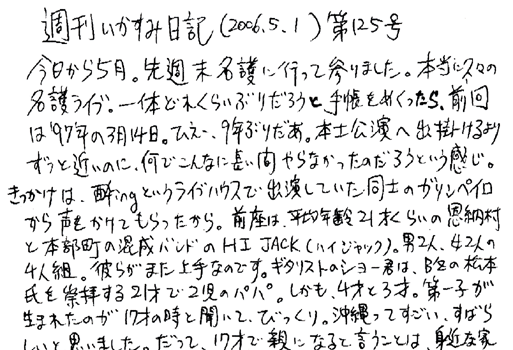 週刊いかすみ日記(2006.5.1)第125号
今日から5月。先週末名護に行って参りました。本当に久々の
名護ライブ。一体どれくらいぶりだろうと手帳をめくったら、前回
は'97年の3月14日。ひえー、9年ぶりだあ。本土公演へ出掛けるより
ずっと近いのに、何でこんなに長い間やらなかったのだろうという感じ。
きっかけは、酔ingというライブハウスで出演していた同士のガリンペイロ
から声をかけてもらったから。前座は、平均年齢21才くらいの恩納村
と本部町の混成バンドのHI JACK(ハイジャック)。男2人、女2人の
4人組。彼らがまた上手なのです。ギタリストのショー君は、B'zの松本
氏を崇拝する21才で2児のパパ。しかも、4才と3才。第一子が
生まれたのが17才の時と聞いて、びっくり。沖縄ってすごい、すばら
しいと思いました。だって、17才で親になると言うことは、身近な家